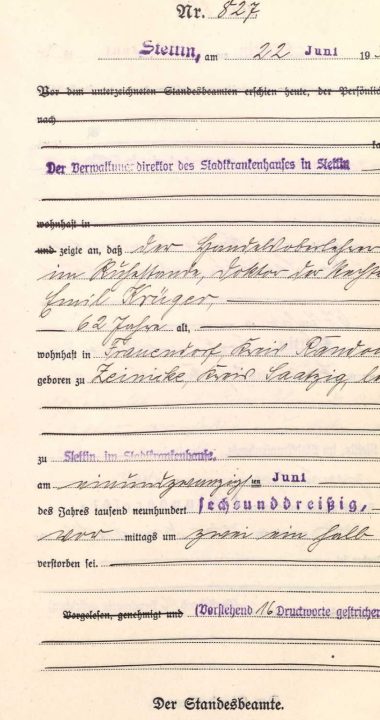 Nr. 827
Stettin, am 22 Juni 19
Vor dem unterzeichneten Standesbeamten erschien heute, der Persönlich
nach
Der Verwaltungsdirektor des Stadtkrankenhauses in Stettin
wohnhaft in
und zeigte an, daß der Handelsoberlehrer
im Ruhestande, Doktor der Rechte
Emil Krüger,
62 Jahre alt,
wohnhaft in Frauendorf Kreis Randow
geboren zu Zeinicke, Kreis Saatzig,
zu Stettin, im Stadtkrankenhause,
am einundzwanzigsten Juni
des Jahres tausend neunhundert sechsunddreißig,
vor mittags um zwei ein halb
verstorben sei.
Vorgelesen, genehmigt und (Vorstehend 16 Druckworte gestrichen
Der Standesbeamte.